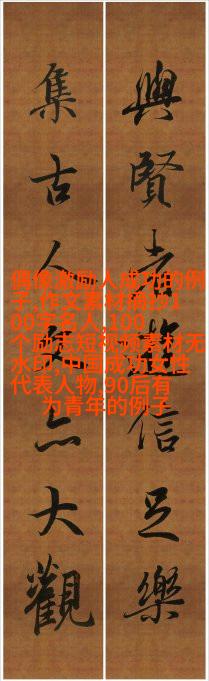 與賢者遊信足樂
集古人文亦大觀
偶像激励人成功的例
子,作文素材摘抄1
00字名人,100
个励志短视频素材无
水印,中国成功女性
代表人物,90后有
为青年的例子